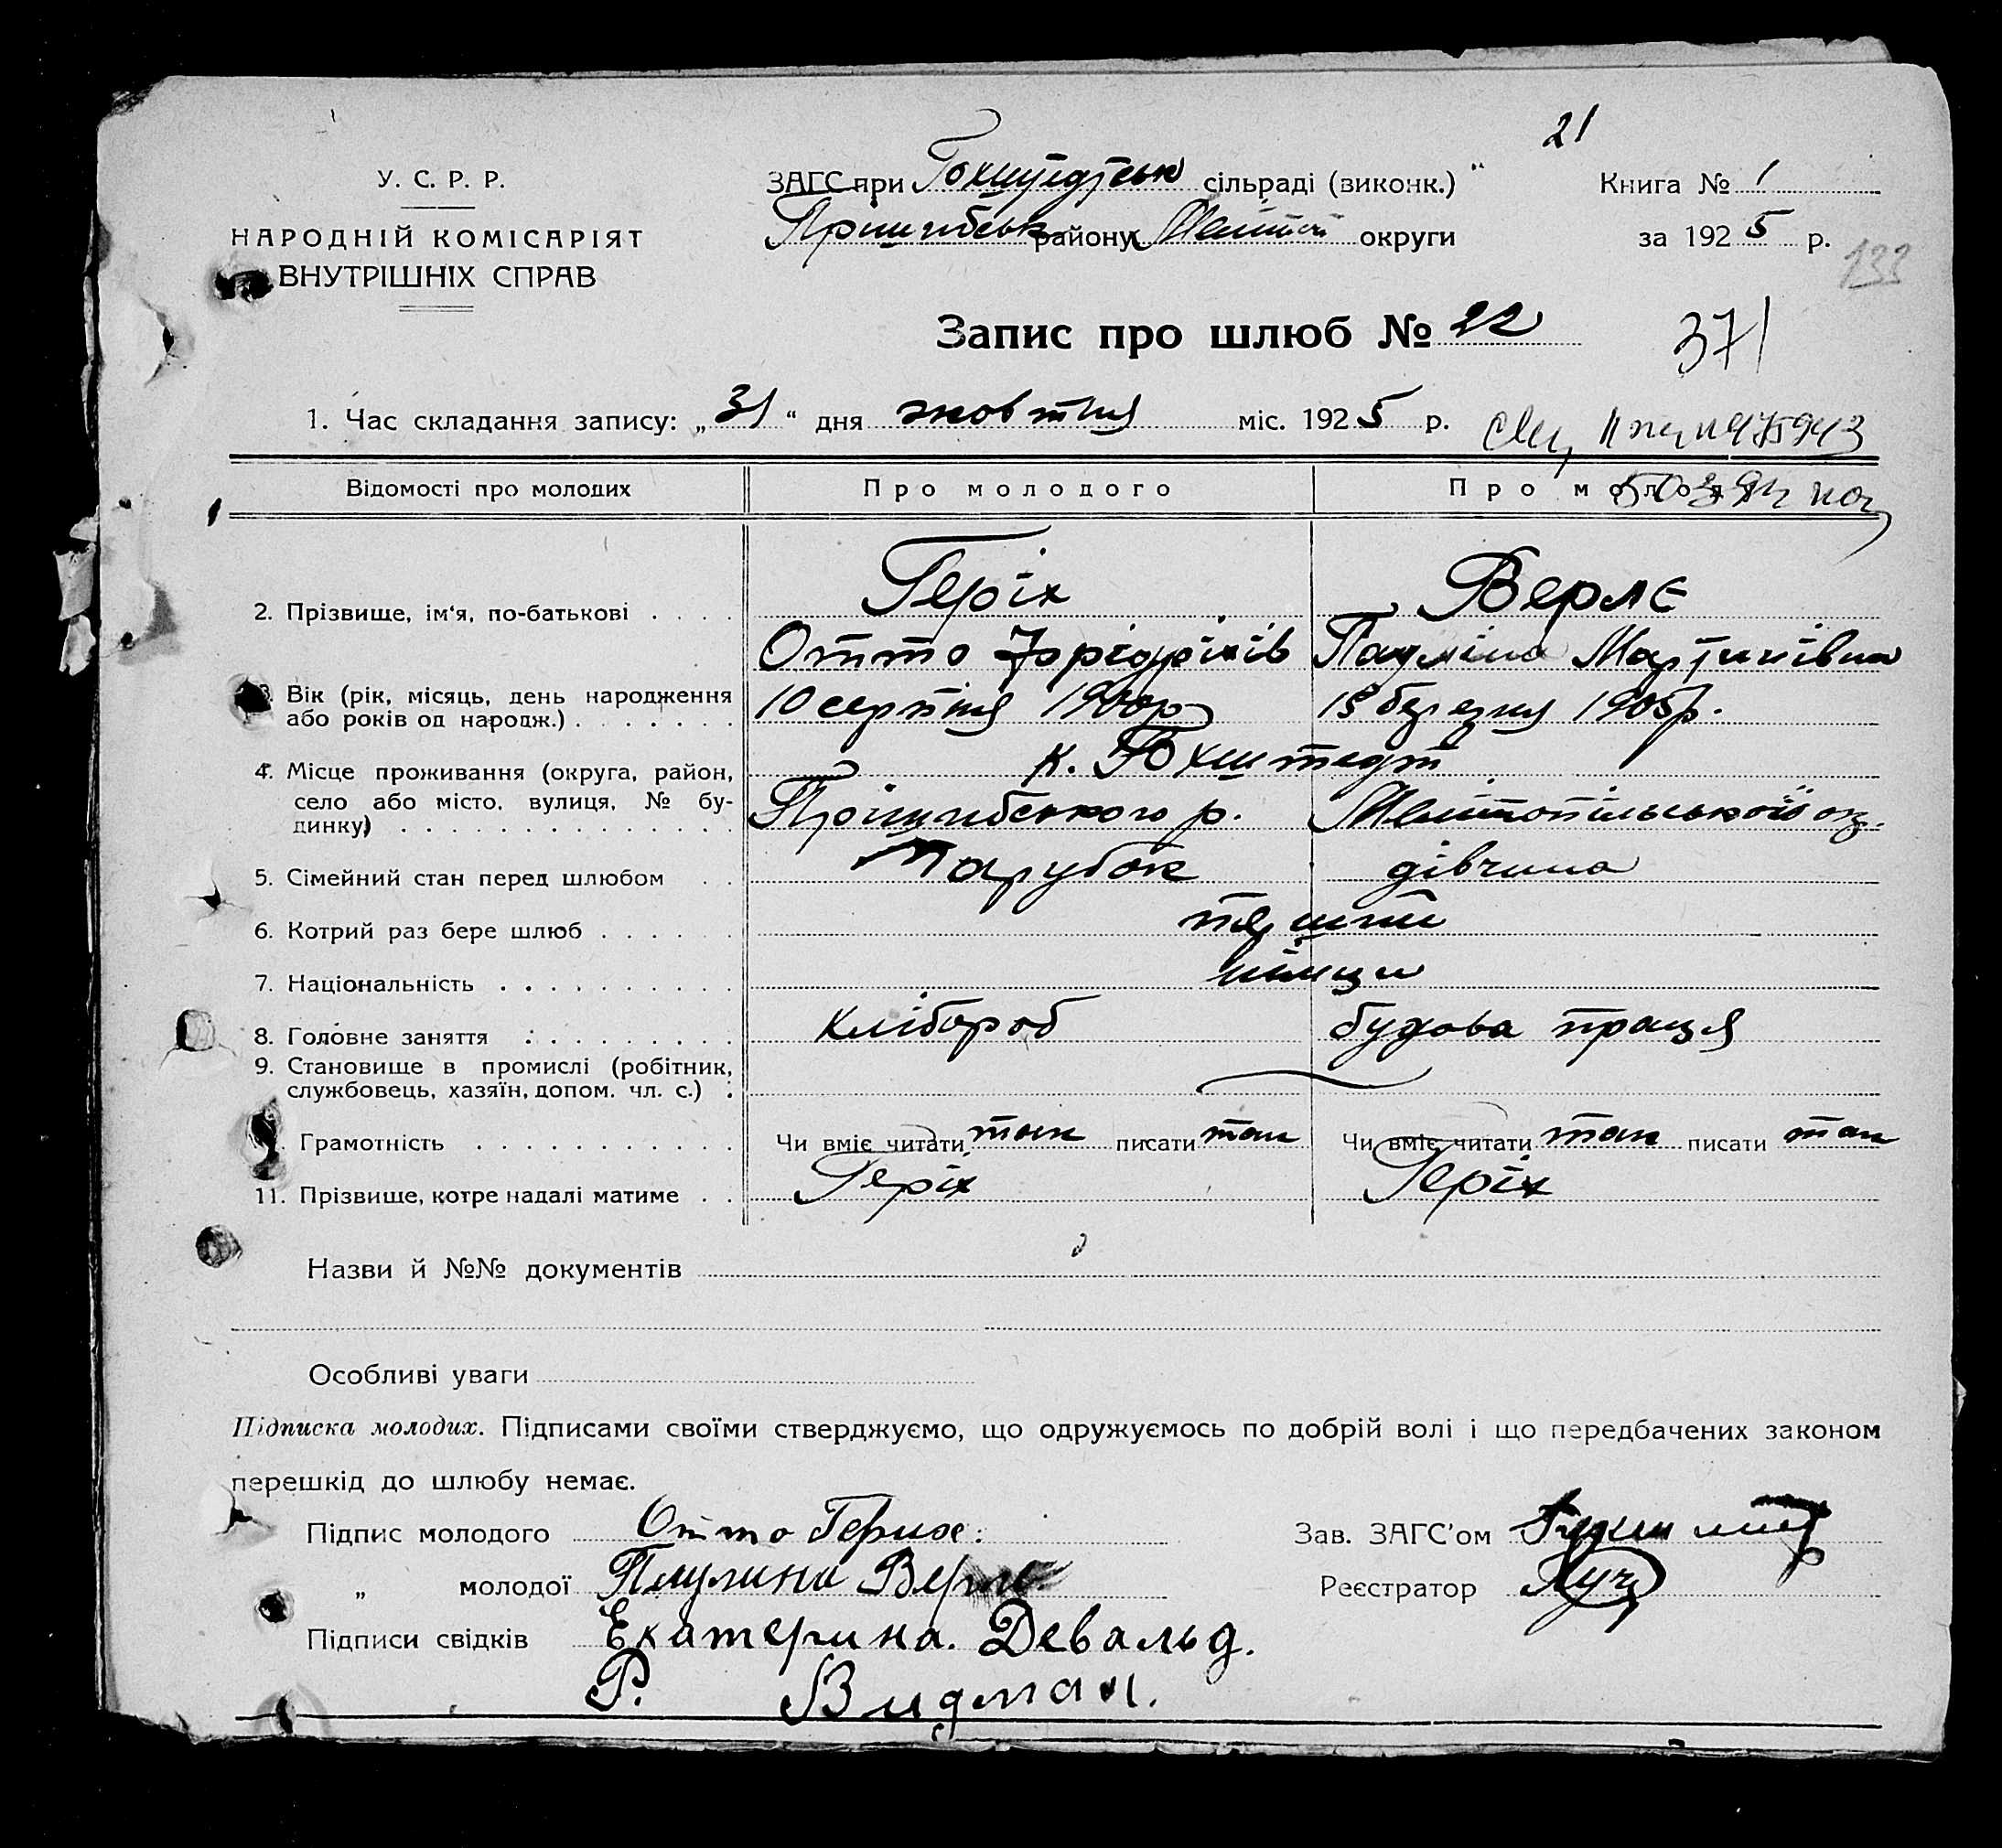 21
У. С. Р. Р.
НАРОДНІЙ КОМІСАРІЯТ
ВНУТРІШНІХ СПРАВ
ЗАГС при сільраді (виконк.)
Пришибськ району Меліт округи
Книга № 1
за 1925 р.
133
Запис про шлюб № 22
371
1. Час складання запису: „31“ дня жовтня міс. 1925 р.
Відомості про молодих Про молодого Про
2. Прізвище, ім‘я, по-батькові Геріх Верлє
Отто Фрідріхів Пауліна Мартинівна
Вік (рік, місяць, день народження або років од народж.) 10 серпня 1900р 15 березня 1905р.
4. Місце проживання (округа, район, село або місто, вулиця, № будинку) к. Гохштедт
Пришибського р. Мелітопільської ок.
5. Сімейний стан перед шлюбом Парубок дівчина
6. Котрий раз бере шлюб перший
7. Національність німци
8. Головне заняття хлібороб будова праця
9. Становище в промислі (робітник, службовець, хазяїн, допом. чл. с.)
Грамотність Чи вміє читати так писати так Чи вміє читати так писати так
11. Прізвище, котре надалі матиме Геріх Геріх
Назви й №№ документів
Особливі уваги
Підписка молодих. Підписами своїми стверджуємо, що одружуємось по добрій волі і що передбачених законом
перешкід до шлюбу немає.
Підпис молодого Отто Герих: Зав. ЗАГС’ом
„ молодої Паулина Верле Реєстратор
Підписи свідків Екатерина. Девальд.
Р. Видман.